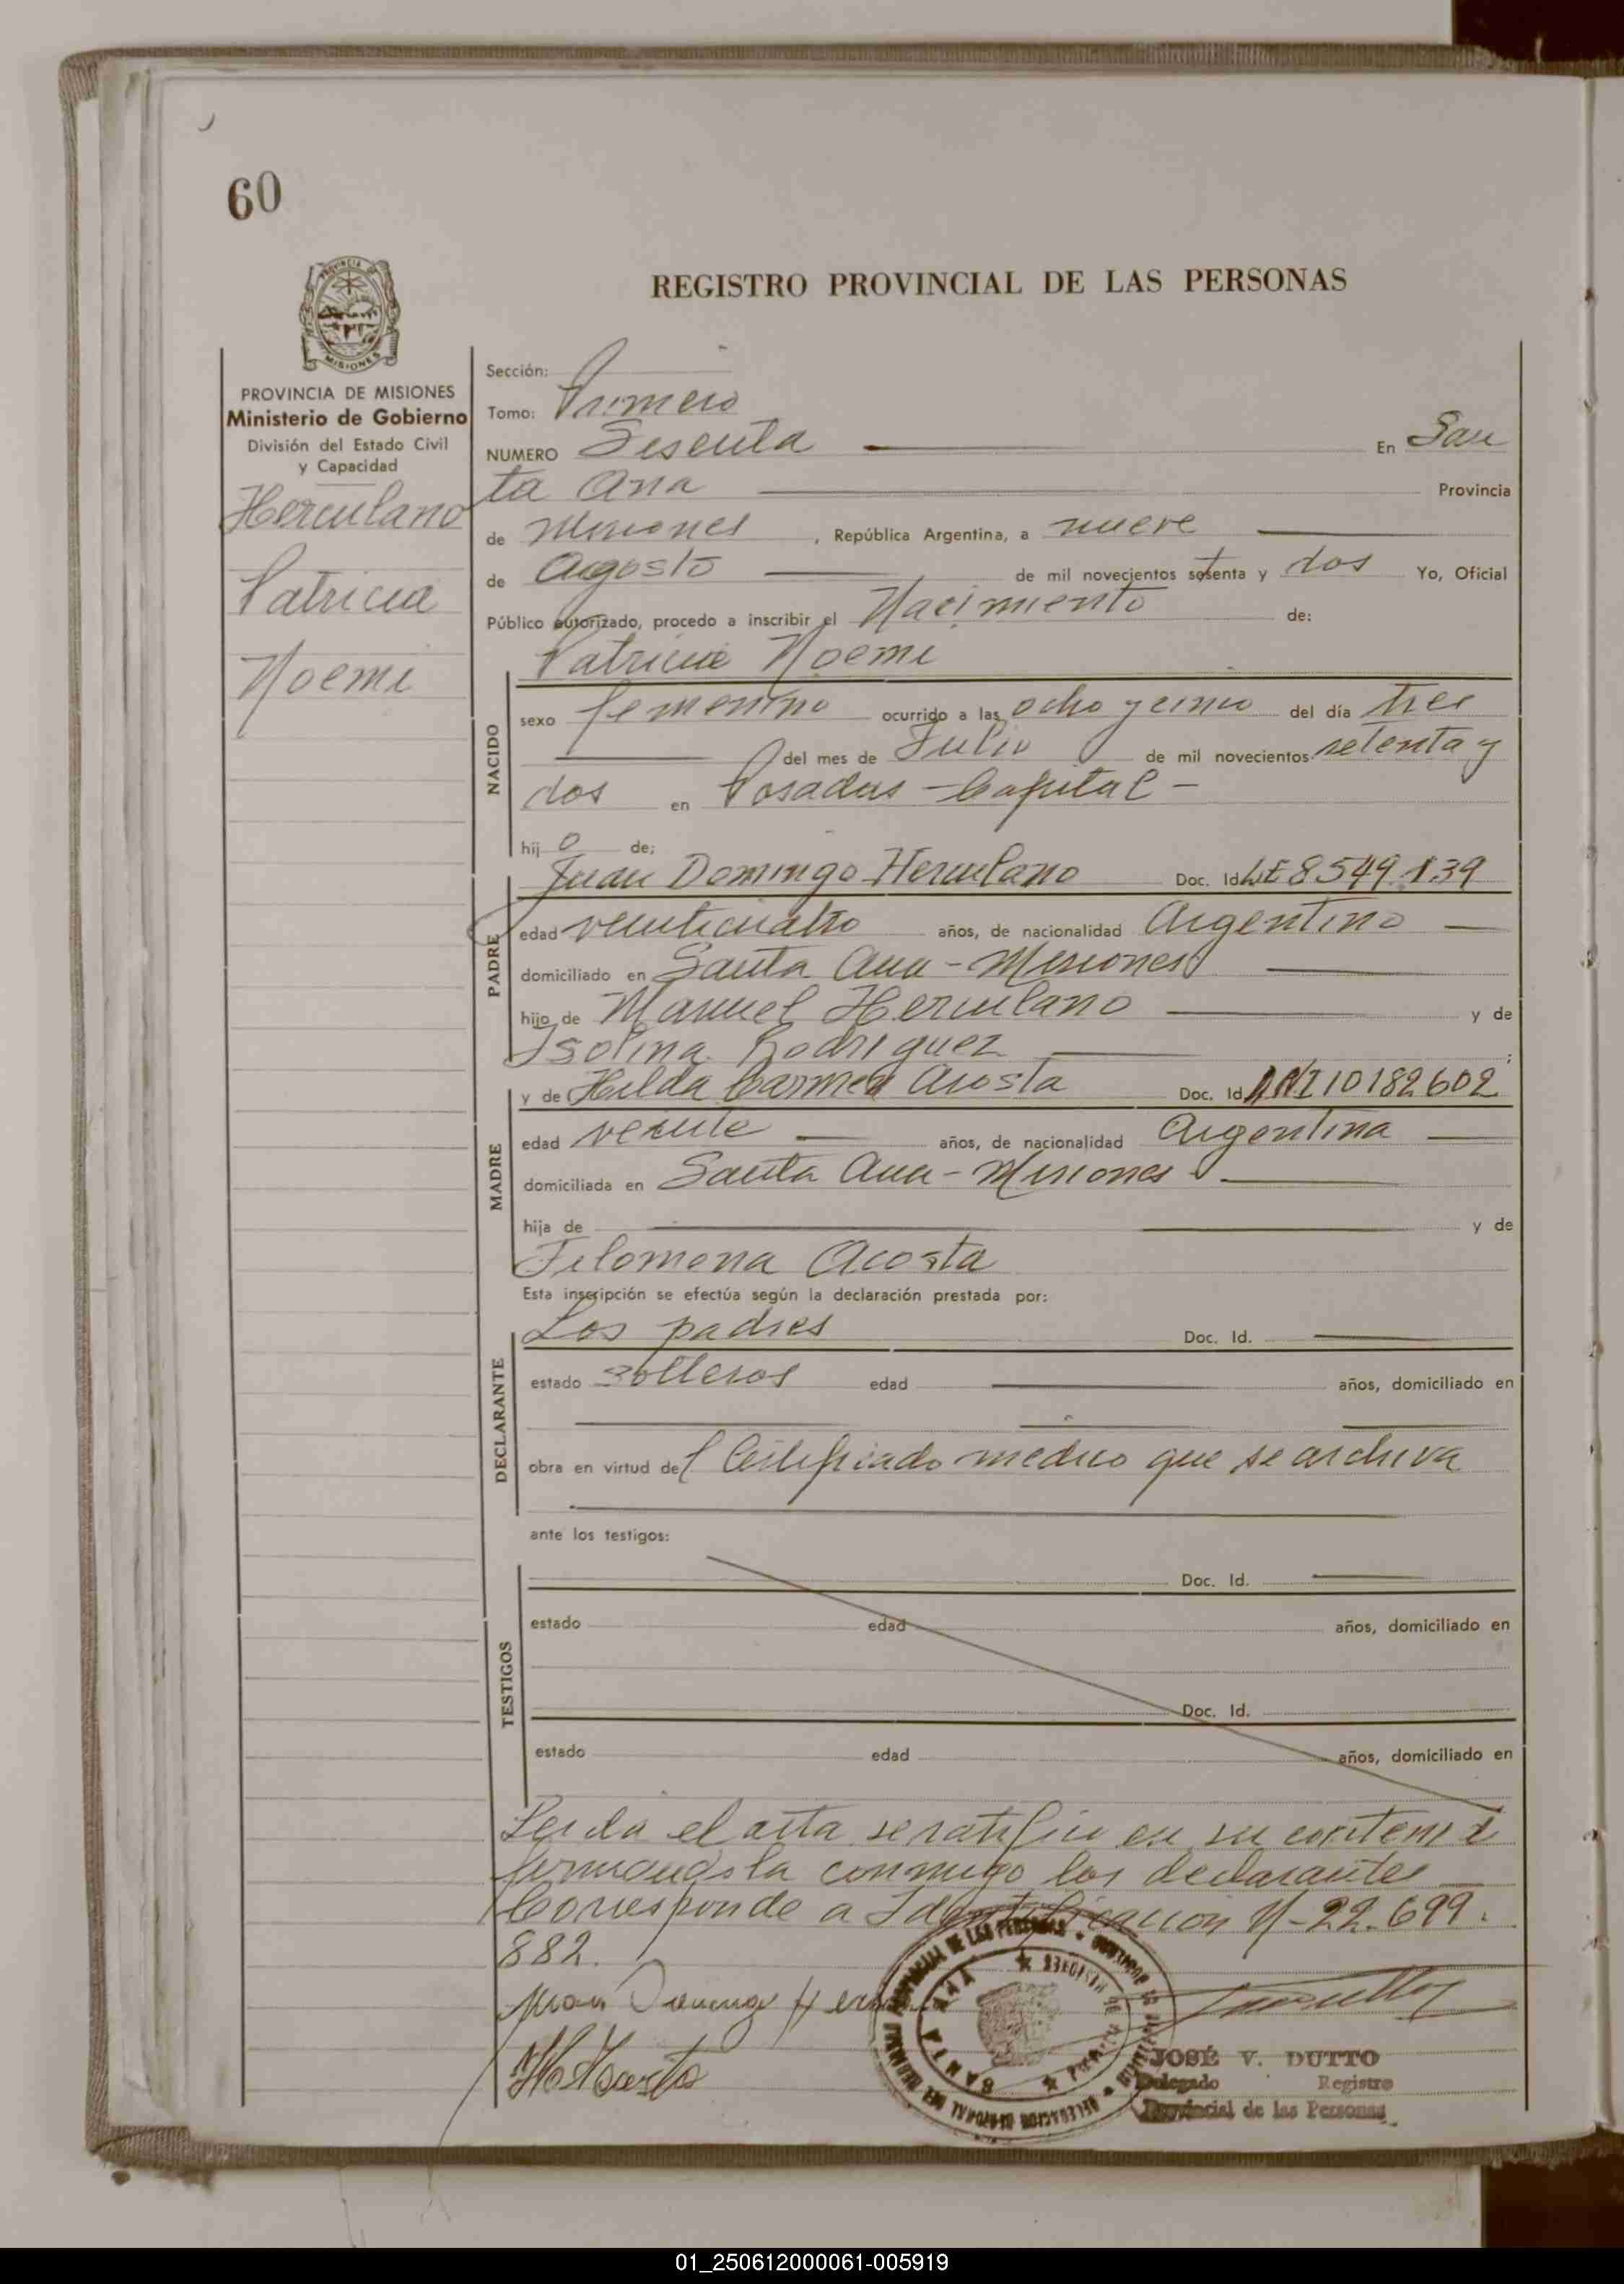 60
REGISTRO PROVINCIAL DE LAS PERSONAS
PROVINCIA DE
MISIONES
PROVINCIA DE MISIONES
Ministerio de Gobierno
División del Estado Civil
y Capacidad
Herculano
Patricia
Noemi
Sección:
Tomo: Primero
NUMERO Sesenta En San
ta Ana Provincia
de Misiones , República Argentina, a nueve
de Agosto de mil novecientos setenta y dos Yo, Oficial
Público autorizado, procedo a inscribir el Nacimiento de:
Patricia Noemi
NACIDO
sexo femenino ocurrido a las ocho y cinco del día tres
del mes de Julio de mil novecientos setenta y
dos en Posadas - Capital -
hij o de;
PADRE
Juan Domingo Herculano Doc. Id. LE 8.549.139
edad veinticuatro años, de nacionalidad Argentino
domiciliado en Santa Ana - Misiones
hijo de Manuel Herculano y de
Isolina Rodriguez ;
MADRE
y de Hilda Carmen Acosta Doc. Id. DNI 10182602
edad veinte años, de nacionalidad Argentina
domiciliada en Santa Ana - Misiones
hija de y de
Filomena Acosta
Esta inscripción se efectúa según la declaración prestada por:
DECLARANTE
Los padres Doc. Id.
estado solteros edad años, domiciliado en
obra en virtud del Certificado medico que se archiva
ante los testigos:
TESTIGOS
Doc. Id.
estado edad años, domiciliado en
Doc. Id.
estado edad años, domiciliado en
Leida el acta se ratifica en su contenido
firmandola conmigo los declarantes
Corresponde a Identificacion N- 22.699.
882.
Juan Domingo
SANTA ANA
JOSÉ V. DUTTO
Delegado Registro
Provincial de las Personas
01_250612000061-005919